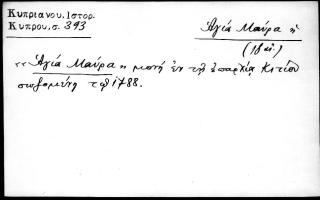 Κυπριανου. Ιστορ.
Κυπρου, σ. 393
Ἁγία Μαύρα ἡ
(18 αἰ.)
«Ἁγία Μαύρα» μονὴ ἐν τῇ ἐπαρχίᾳ Κιτίου
σωζομένη τῷ 1788.